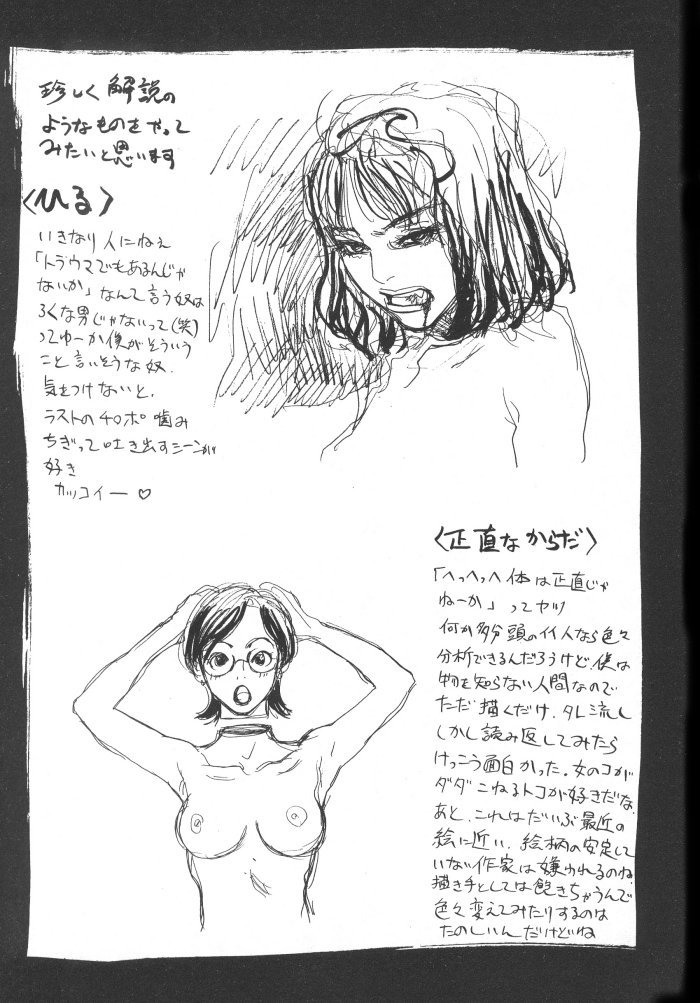 珍しく解説の
ようなものをやって
みたいと思います
〈ひる〉
いきなり人にねえ
「トラウマでもあるんじゃ
ないか」なんて言う奴は
ろくな男じゃないって(笑)
ってゆーか僕がそういう
こと言いそうな奴.
気をつけないと.
ラストのチ○ポ噛み
ちぎって吐き出すシーンが
好き
カッコイー♡
〈正直なからだ〉
「へっへっへ体は正直じゃ
ねーか」ってヤツ
何か多分頭のイイ人なら色々
分析できるんだろうけど.僕は
物を知らない人間なので
ただ描くだけ.タレ流し
しかし読み返してみたら
けっこう面白かった.女のコが
ダダこねるトコが好きだな.
あと.これはだいぶ最近の
絵に近い.絵柄の安定して
いない作家は嫌われるのね.
描き手としては飽きちゃうんで
色々変えてみたりするのは
たのしいんだけどね